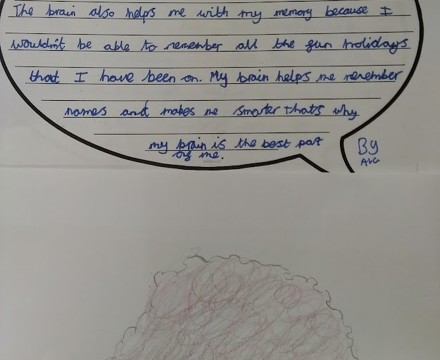 The brain also helps me with my memory because I
wouldn't be able to remember all the fun holidays
that I have been on. My brain helps me remember
names and makes me smarter that's why
my brain is the best part
of me.
By